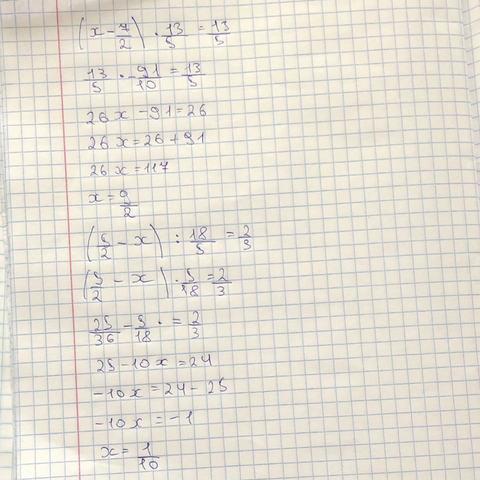 (x - 7/2) · 13/5 = 13/5
13/5 · - 91/10 = 13/5
26x - 91 = 26
26x = 26 + 91
26x = 117
x = 9/2
(5/2 - x) : 18/5 = 2/3
(5/2 - x) · 5/18 = 2/3
25/36 - 5/18 · = 2/3
25 - 10x = 24
-10x = 24 - 25
-10x = -1
x = 1/10